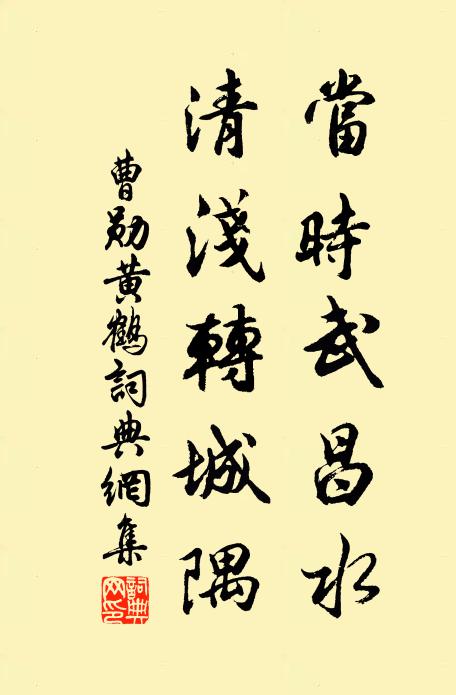 當時武昌水
清淺轉城隅
曹勛黃鶴詞典網集
詞典網印